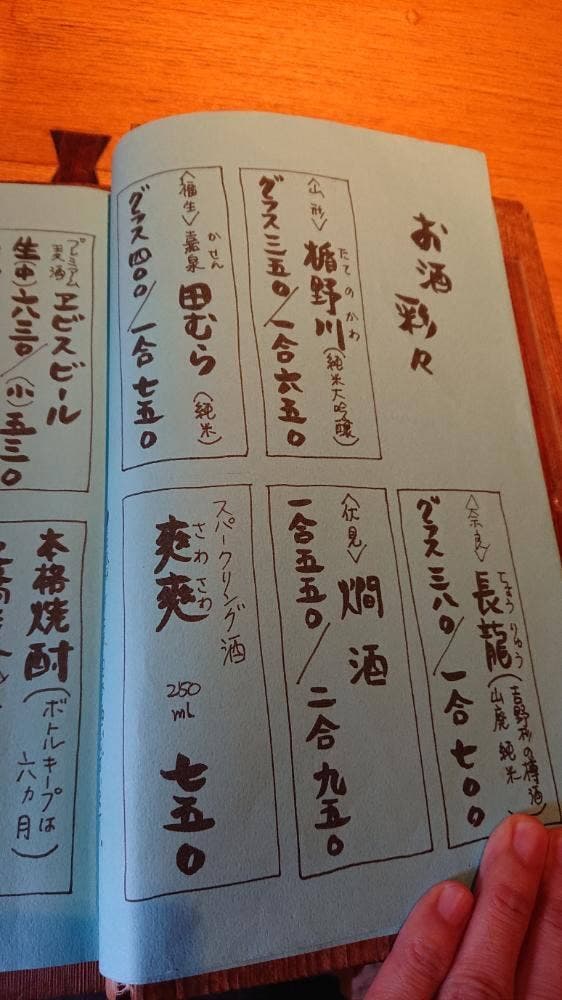 お酒彩々
〈山形〉
たてのかわ
楯野川（純米大吟醸）
グラス三五〇／一合六五〇
〈福生〉
かせん
嘉泉 田むら（純米）
グラス四〇〇／一合七五〇
〈奈良〉
ちょうりゅう
長龍（吉野杉の樽酒
山廃純米）
グラス三八〇／一合七〇〇
〈伏見〉
燗酒
一合五五〇／二合九五〇
スパークリング酒
さわさわ
爽爽
250ml
七五〇
プレミアム
麦酒
ヱビスビール
生（中）六三〇／（小）五三〇
本格焼酎（ボトルキープは
六ヵ月）